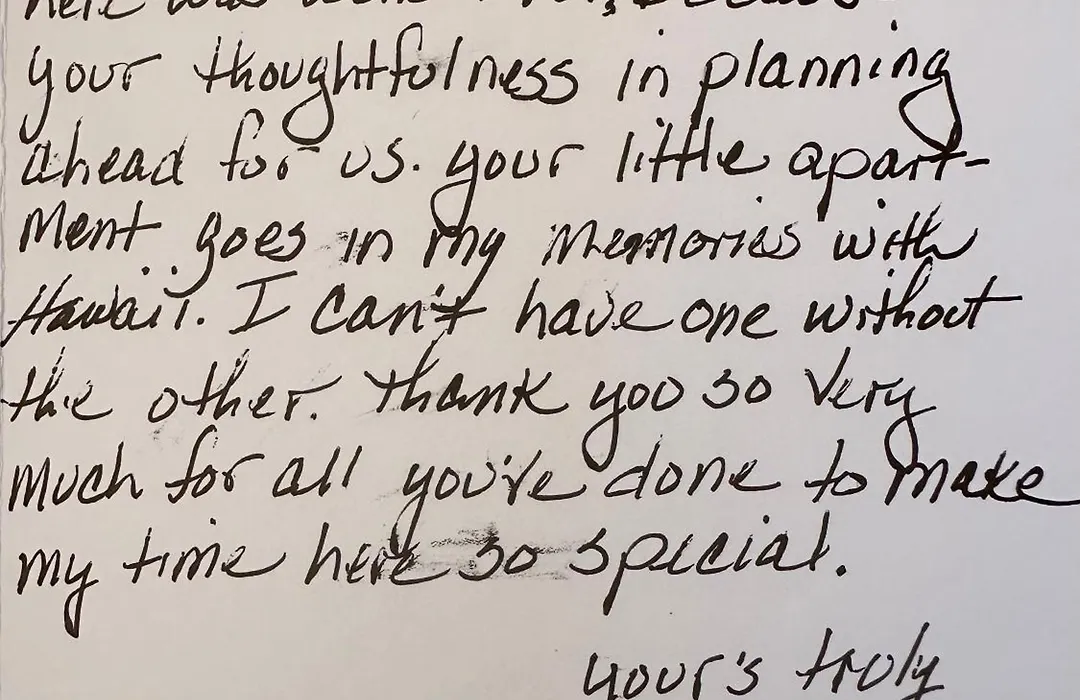 here was
your thoughtfulness in planning
ahead for us. your little apart-
ment goes in my memories with
Hawaii. I can't have one without
the other. Thank you so very
much for all you've done to make
my time here so special.
your's truly